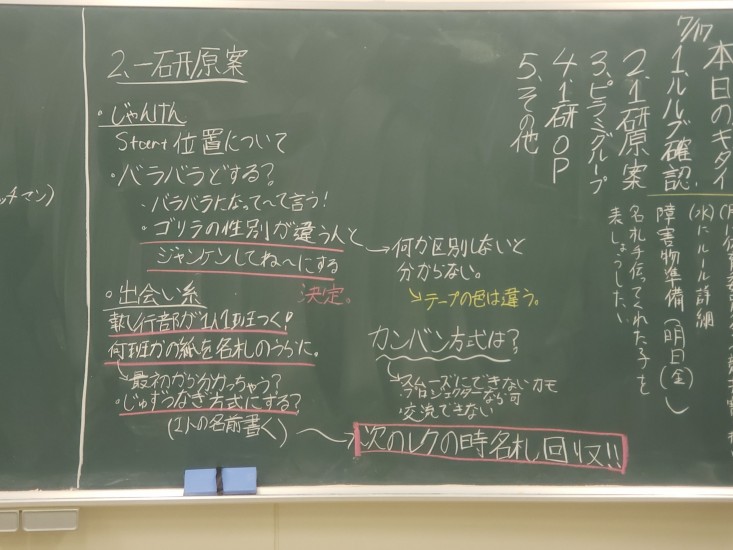 7/17
本日のギダイ
1、ルルブ確認
2、1研原案
3、ピラミグループ
4、1研OP
5、その他
(水)にルール詳細
障害物準備(明日(金))
名札手伝ってくれた子を
表しょうしたい
2、一石研原案
・じゃんけん
Start位置について
・バラバラどする?
・バラバラになって〜て言う!
・ゴリラの性別が違う人と
ジャンケンしてね〜にする
決定。
→何か区別しないと
分からない。
↘テープの色は違う。
・出会い系
執行部が1人1班つく!
何班かの紙を名札のうらに。
→最初から分かっちゃう?
・じゅずつなぎ方式にする?
(1人の名前書く)
カンバン方式は?
→スムーズにできないカモ
プロジェクターなら可
交流できない
次のレクの時名札回収!!
ッチマン)